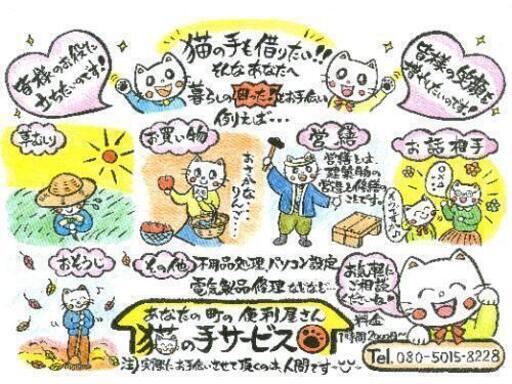 皆様のお役に
立ちたいのです!
猫の手も借りたい!!
そんなあなたへ
暮らしの困った!をお手伝い
例えば・・・
皆様の笑顔を
増やしたいのです!
草むしり
お買い物
おさかな
りんご
営繕
営繕とは、
建築物の
営造と修繕の
ことです。
お話相手
おそうじ
その他
不用品処理、パソコン設定
電気製品修理などなど…
お気軽に
ご相談
くださいね
料金
1時間2000円〜
あなたの町の便利屋さん
猫の手サービス
注)実際にお手伝いさせて頂くのは、人間です
Tel.080-5015-8228